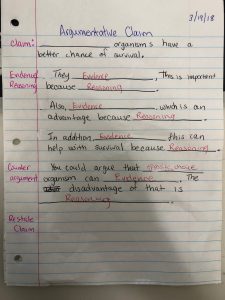 3/19/18
Argumentative Claim
Claim: ______ organisms have a
better chance of survival.
Evidence They Evidence. This is important
Reasoning because Reasoning.
Also, Evidence, which is an
advantage because Reasoning.
In addition, Evidence this can
help with survival because Reasoning.
Counter You could argue that opposite choice
argument organism can Evidence. The
disadvantage of that is
Reasoning.
Restate
Claim